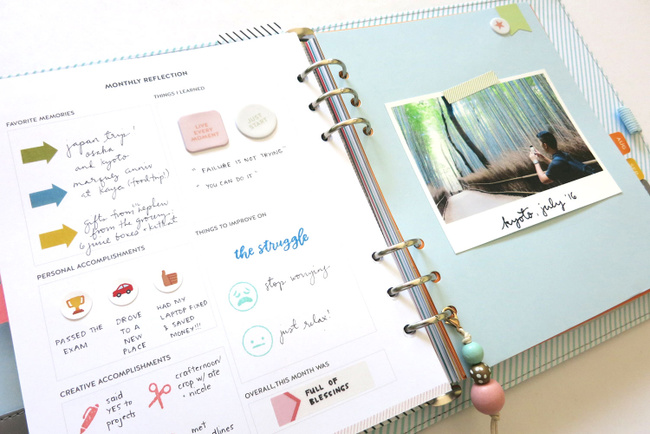 MONTHLY REFLECTION
FAVORITE MEMORIES
japan trip!
osaka
and kyoto
at Kaya (food trip!)
gifts from nephew
from the grocery
6 juice boxes + kitkat
PERSONAL ACCOMPLISHMENTS
PASSED THE
EXAM
DROVE
TO A
NEW
PLACE
HAD MY
LAPTOP FIXED
& SAVED
MONEY!!!
CREATIVE ACCOMPLISHMENTS
said
YES to
projects
crafternoon/
crop w/ ate
nicole
met
THINGS I LEARNED
LIVE
EVERY
MOMENT
JUST
START
"FAILURE IS NOT TRYING"
"YOU CAN DO IT"
THINGS TO IMPROVE ON
the struggle
stop worrying
just relax!
OVERALL, THIS MONTH WAS
FULL OF
BLESSINGS
kyoto, july '16